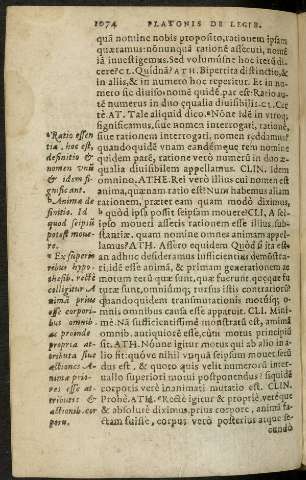 1074 PLATONIS DE LEGIB.
quã nomine nobis proposito, rationem ipsam
quæramus: nõnunquã rationẽ assecuti, nomẽ
iã inuestigemus. Sed volumúsne hoc itẽtã di-
cere? CL. Quidnã? ATH. Bipertita distinctio, &
in aliis, & in numero hoc reperitur. Et in nu-
mero sic diuiso: nomẽ quidẽ par est: Ratio au-
tẽ numerus in duo æqualia diuisibilis. CL. Cer
tè. AT. Tale aliquid dico. Nónne idẽ in vtroq;
significamus, siue nomen interrogati, rationẽ,
siue rationem interrogati, nomen reddamus?
quandoquidẽ vnam eandémque rem nomine
quidem parẽ, ratione verò numerũ in duo æ-
qualia diuisibilem appellamus. CLIN. Idem
omnino. ATHE. Rei verò illius cui nomen est
anima, quænam ratio est? Num habemus aliam
rationem, præter eam quam modò diximus,
quòd ipsa possit seipsam mouere? CLI. A sei-
pso moueri asseris rationem esse illius sub-
stantiæ, quam scilicet omnes animam appel-
lamus? ATH. Assero equidem. Quòd si ita est
an adhuc desideramus sufficienter demõstra-
ri, idẽ esse animã, & primam generationem ac
motum terũ quæ sunt, quæ fuerunt, quǽque fu
turæ sunt, omniũmq; rursus istis contrariorũ?
quandoquidem transmutationis motusq; o-
mnis omnibus causa esse apparuit. CLI. Mini-
mè. Nã sufficientissimè monstratũ est, animã
omnib. antiquiorẽ esse, cùm motus principiũ
sit. ATH. Nónne igitur motus qui ab alio in a-
lio fit: quóve nihil vnquã seipsum mouet, secũ
dus est, & quoto quis velit numerorũ inter-
uallo superiori motui postponendus? siquidẽ
corporis verè inanimati mutatio est. CLIN.
Probè. ATH. Rectè igitur & propriè, verẽque
& absolutè diximus, prius corpore, animã fa-
ctam fuisse, corpus verò posterius atque se-
cundo
Ratio essen
tia, hoc est,
definitio &
nomen vnũ
& idem si-
gnificant.
Animæ de
finitio. Id
quod seipsũ
potest moue-
re.
Ex superio
ribus hypo-
thesib. rectè
colligitur A
nimã prius
esse corpori-
bus omnib.
ac proinde
propria at-
tributa siue
actiones A-
nimæ prio-
res esse at-
tributis &
actionib. cor
porũ.